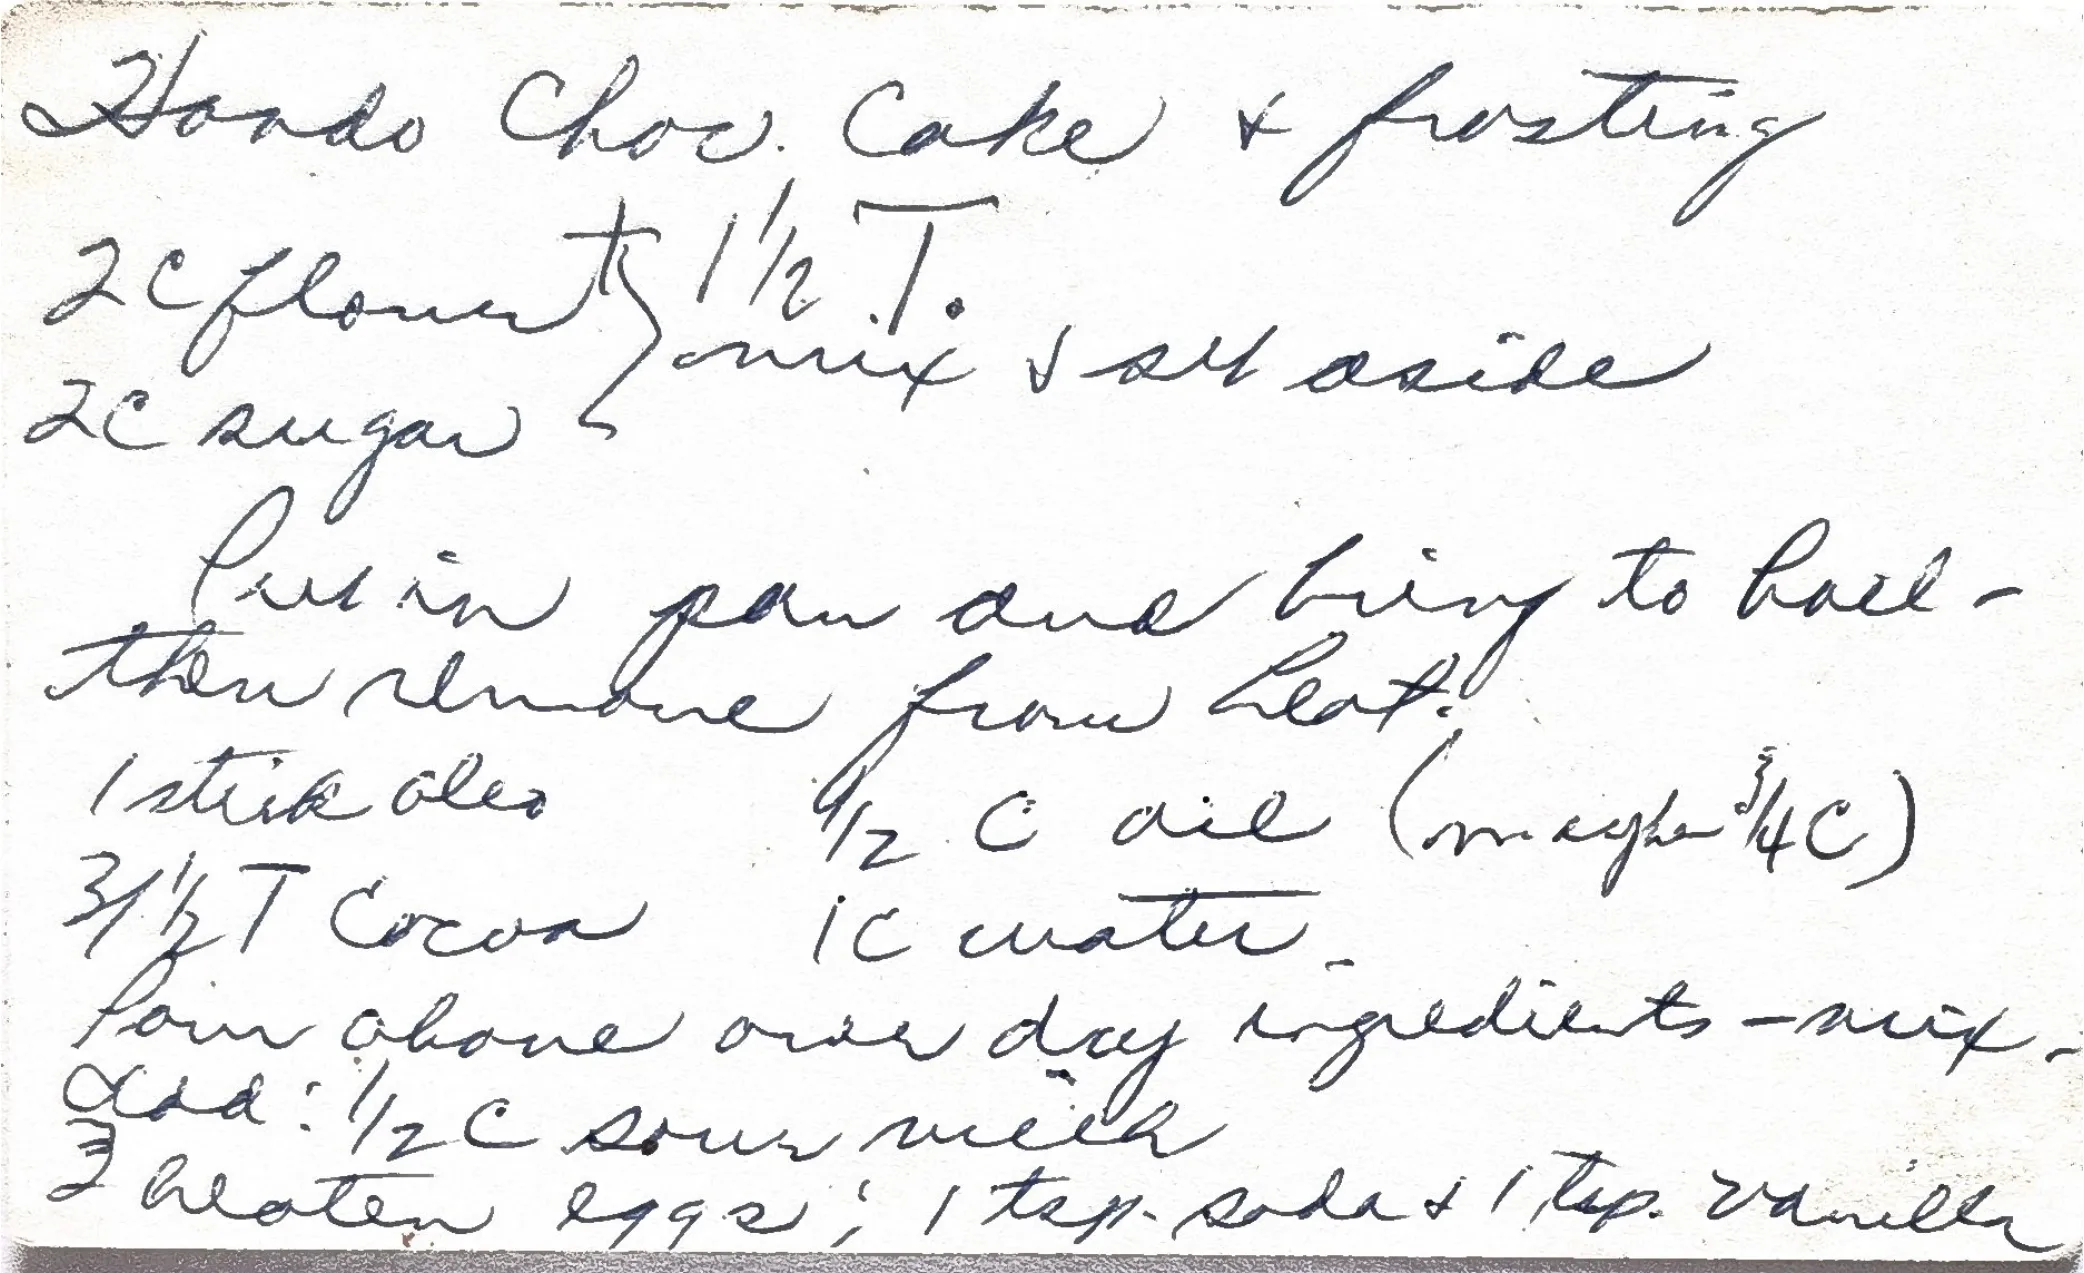 Hondo Choc. Cake & frosting
2 C flour + } 1 1/2 T.
mix & set aside
2 C sugar
Put in pan and bring to boil -
then remove from heat.
1 stick oleo 1/2 C oil (maybe 3/4 C)
3 1/2 T Cocoa 1 C water
Pour above over dry ingredients - mix.
Add: 1/2 C sour milk
beaten eggs; 1 tsp. soda & 1 tsp. vanilla